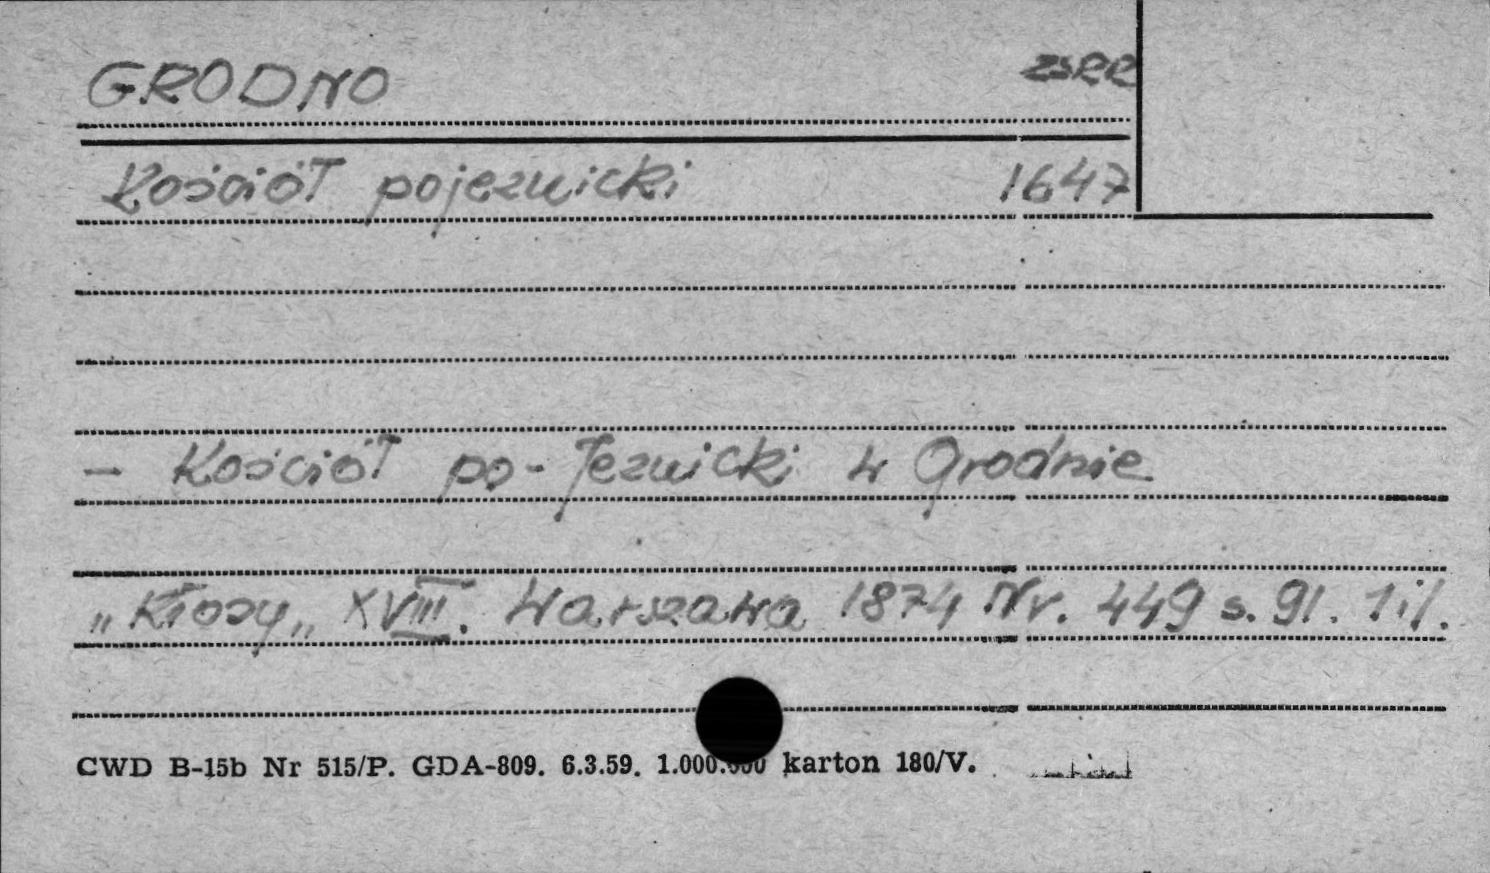 GRODNO ZSRR
Kościół pojezuicki 1647
- Kościół po-Jezuicki w Grodnie
"Kłosy" XVIII. Warszawa 1874 Nr. 449 s. 91. 1 il.
CWD B-15b Nr 515/P. GDA-809. 6.3.59. 1.000.000 karton 180/V.